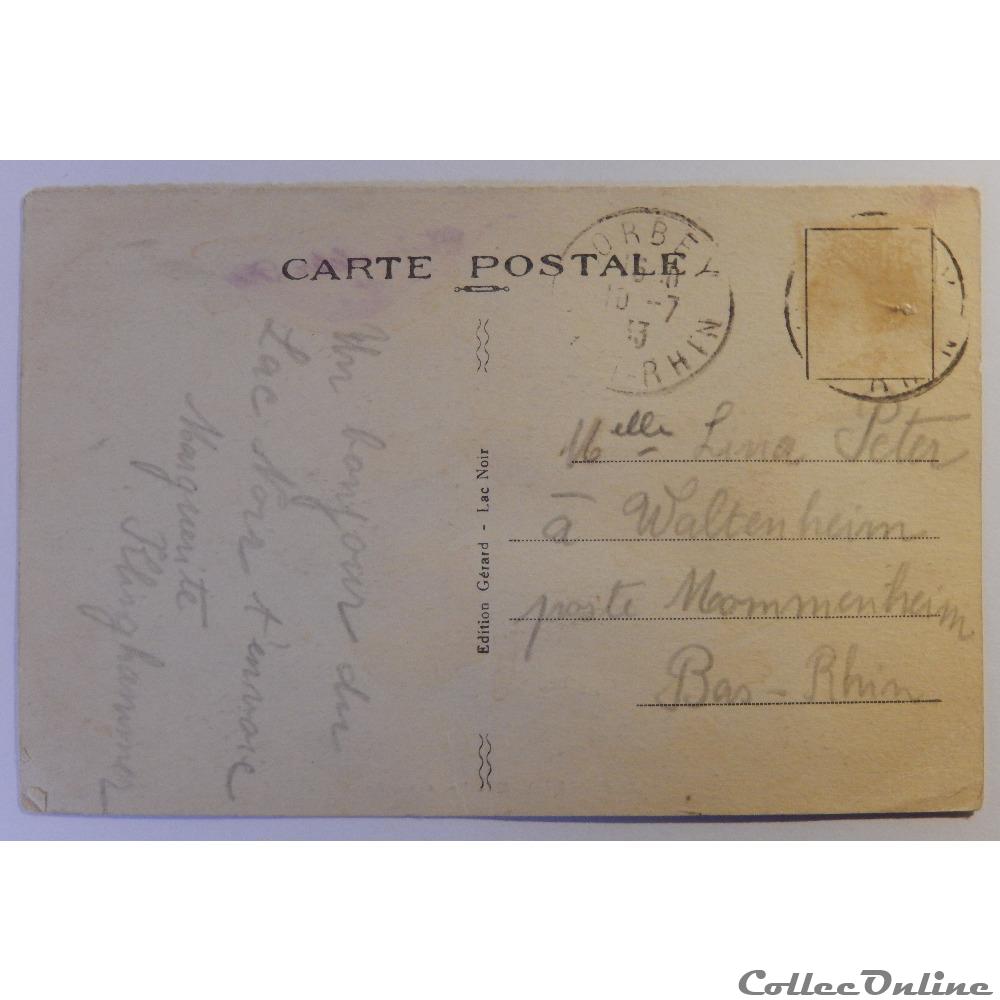 CARTE POSTALE
ORBEY
10 -7
-RHIN
Un bonjour du
Lac Noir t'envoie
Marguerite
Klinghammer
Edition Gérard - Lac Noir
Melle Lina Peter
à Waltenheim
poste Mommenheim
Bas-Rhin
CollecOnline